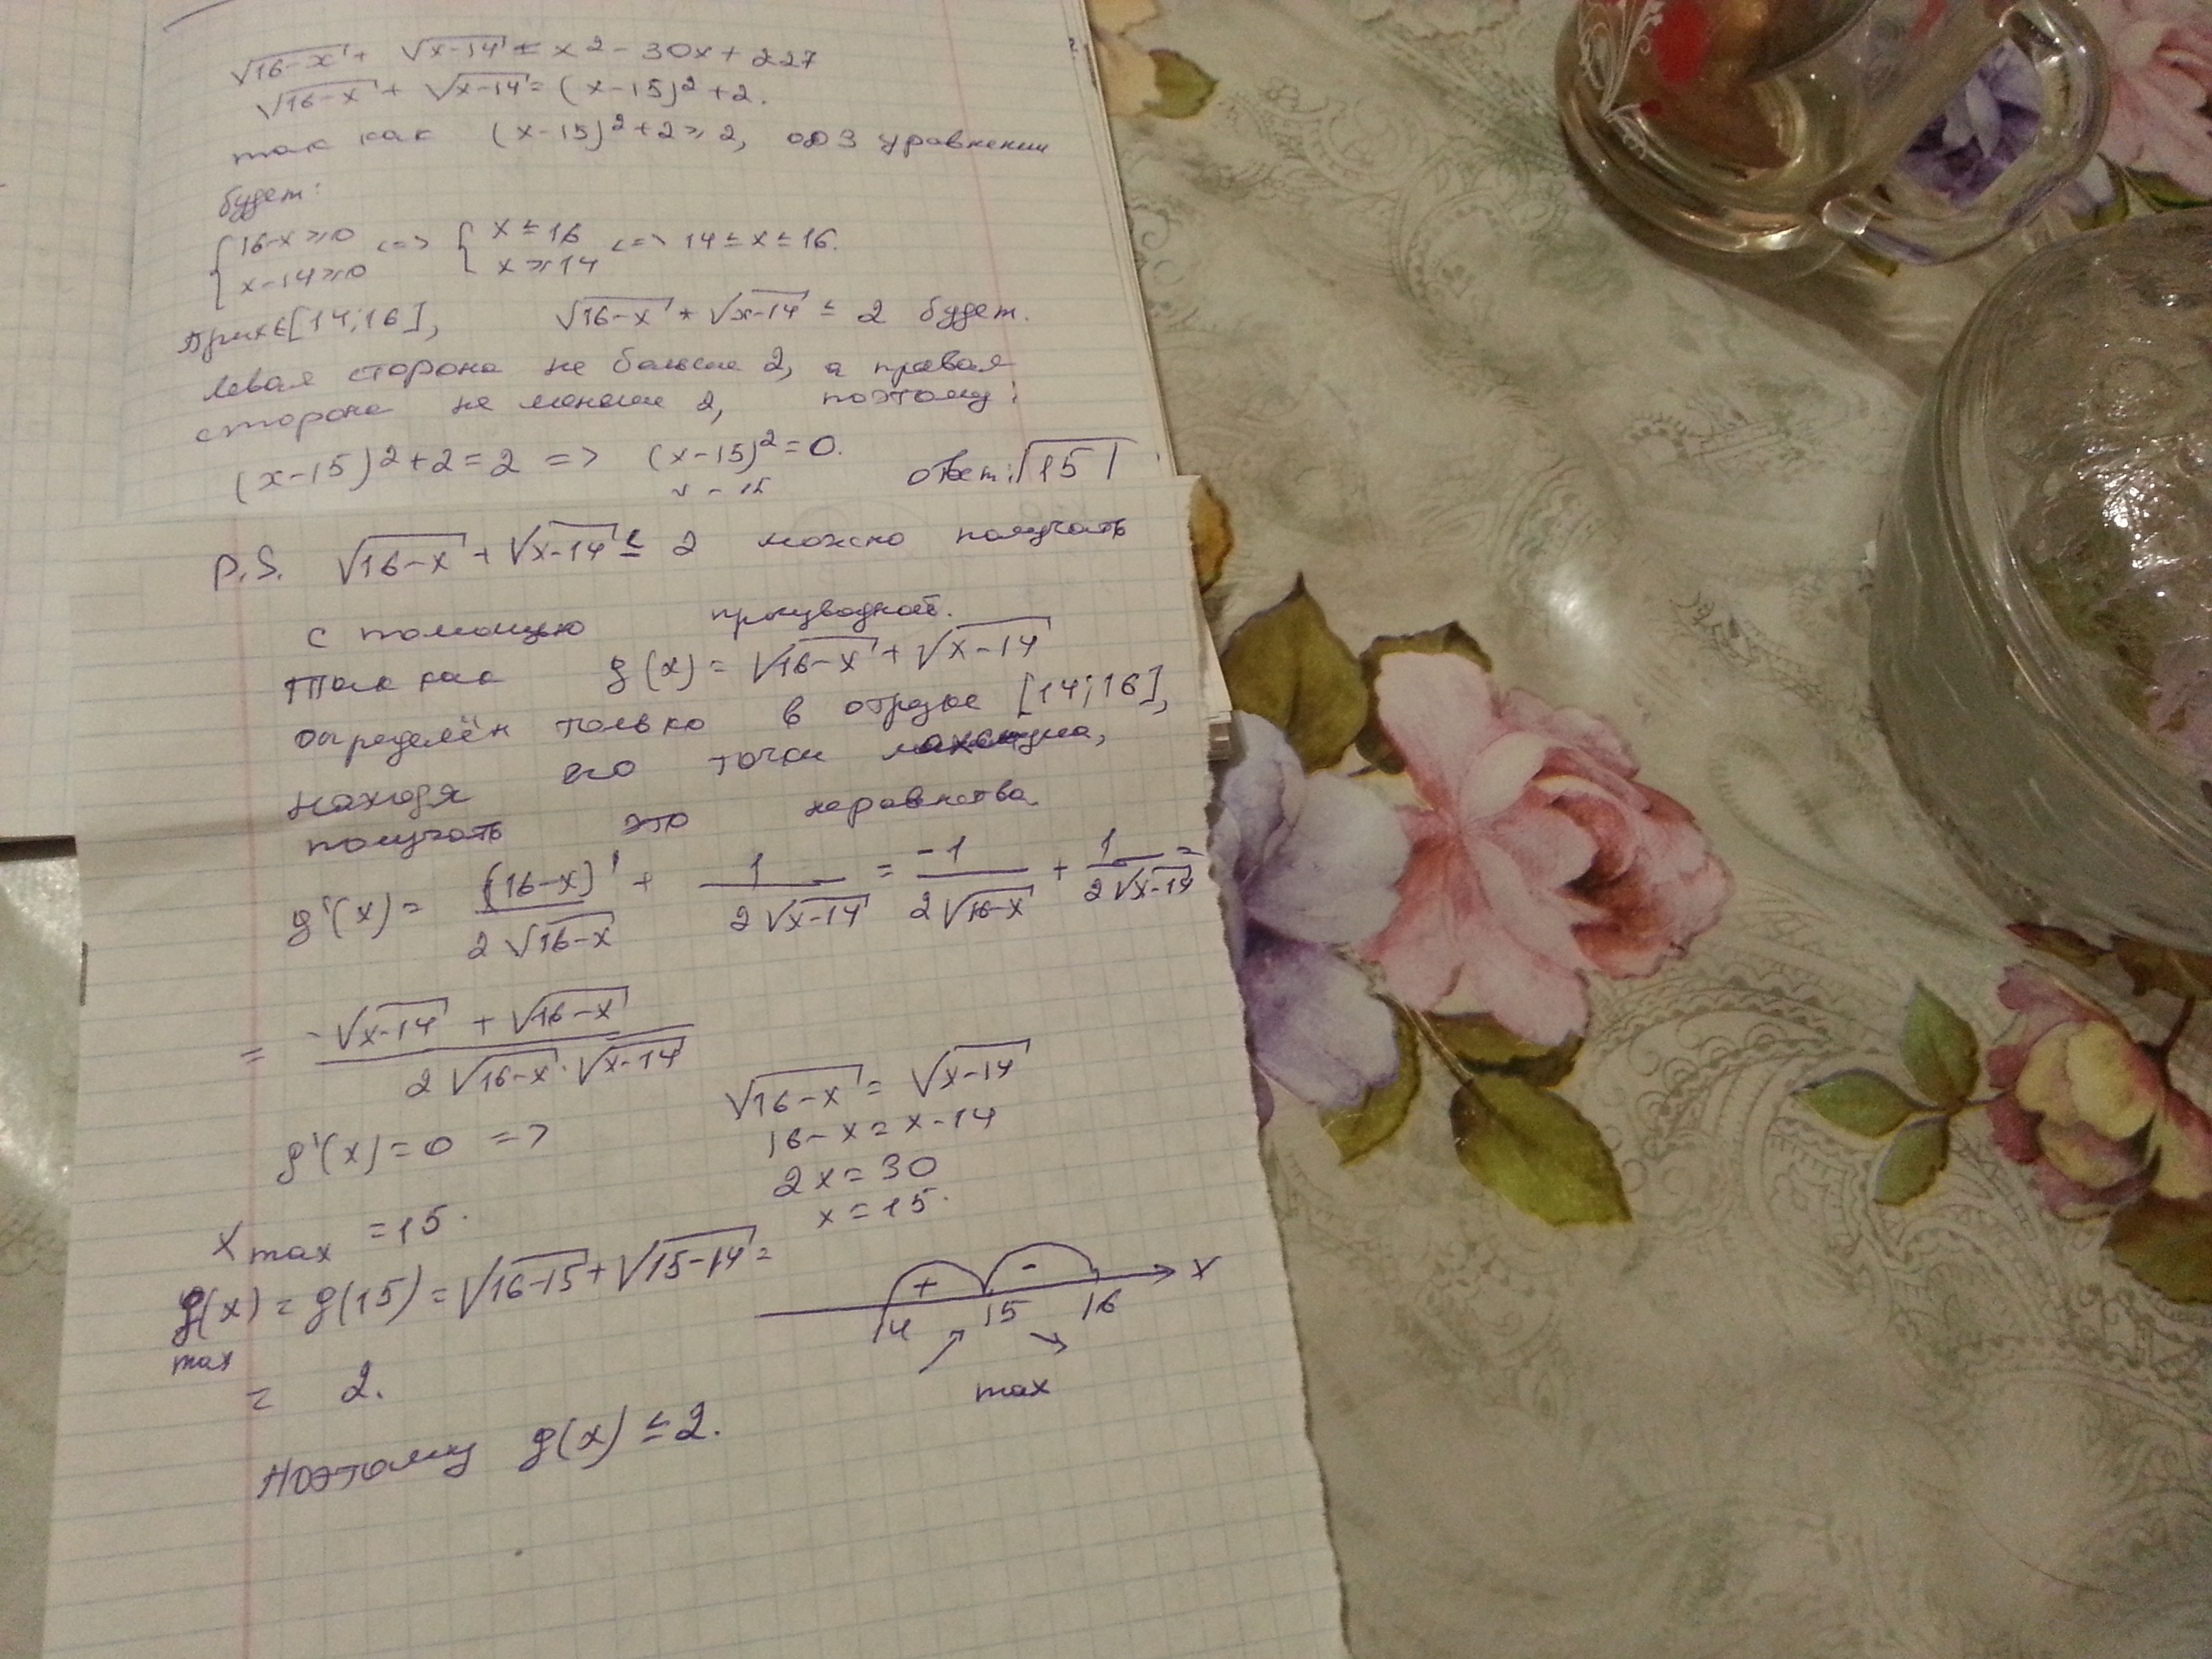 √16-x + √x-14 = x² - 30x + 227
√16-x + √x-14 = (x-15)² + 2.
так как (x-15)² + 2 ≥ 2, ОДЗ уравнении
будет:
{16-x ≥ 0 <=> {x ≤ 16 <=> 14 ≤ x ≤ 16.
x-14 ≥ 0 x ≥ 14
При x∈[14;16], √16-x + √x-14 ≤ 2 будет.
левая сторона не больше 2, а правая
сторона не меньше 2, поэтому:
(x-15)² + 2 = 2 => (x-15)² = 0.
x = 15
ответ: 15
P.S. √16-x + √x-14 ≤ 2 можно получать
с помощью производной.
Так как g(x) = √16-x + √x-14
определён только в отрезке [14;16],
находя его точки максимума,
получать это неравенства.
g'(x) = (16-x)'/2√16-x + 1/2√x-14 = -1/2√16-x + 1/2√x-14 =
= -√x-14 + √16-x / 2√16-x · √x-14
g'(x) = 0 => √16-x = √x-14
16-x = x-14
2x = 30
x = 15.
x max = 15.
g(x) = g(15) = √16-15 + √15-14 =
max
= 2.
+ - x
14 15 16
max
Поэтому g(x) ≤ 2.